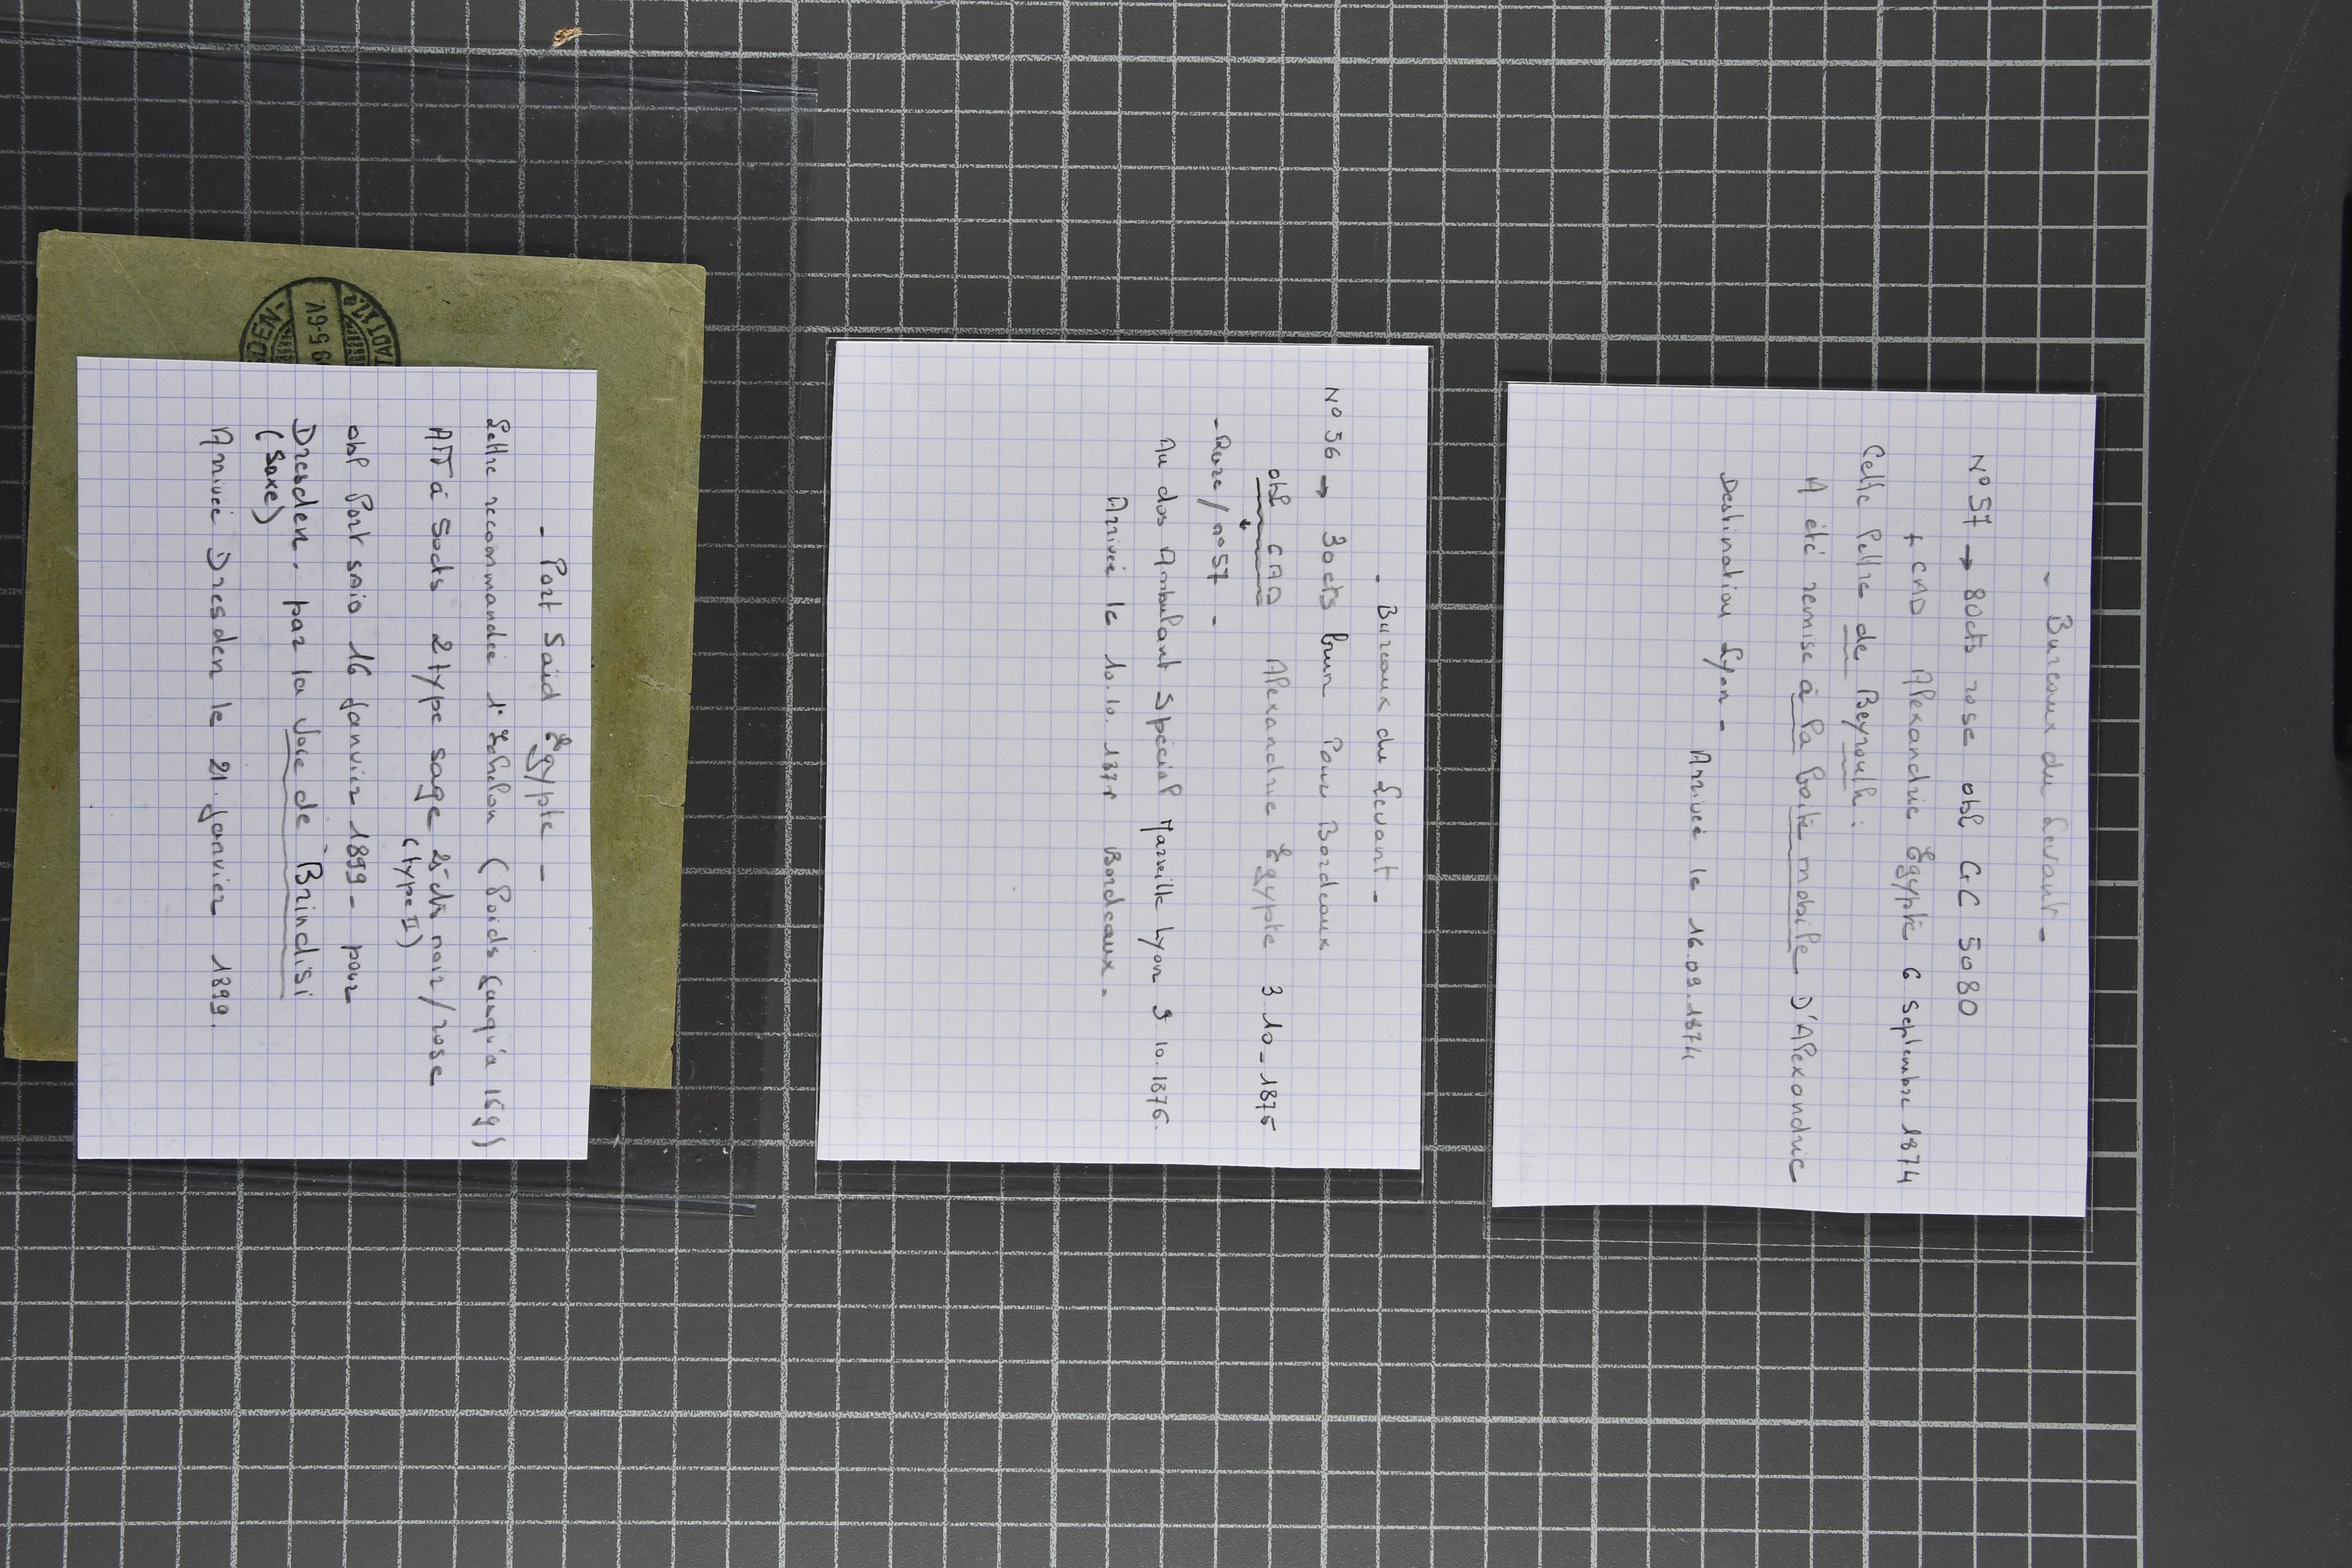 - Bureaux du Levant -
N° 57 → 80cts rose obl GC 5080
+ CAD Alexandrie Egypte 6 Septembre 1874
Cette lettre de Beyrouth :
A été remise à la boite mobile D'Alexandrie
Destination Lyon - Arrivée le 16.09.1874
- Bureaux du Levant -
N° 56 → 30cts brun Pour Bordeaux
obl CAD Alexandrie Egypte 3.10_1875
- Rare / n° 57 -
Au dos Ambulant Spécial Marseille Lyon 9 10.1876.
Arrivée le 10.10.187 Bordeaux -
- Port Said Egypte -
Lettre recommandée 1° Echelon (Poids Jusqu'a 15g)
Aff à 50cts 2 type sage 25cts noir/rose
(type II)
obl Port Said 16 Janvier 1899 - pour
Dresden. par la Voie de Brindisi
(Saxe)
Arrivée Dresden le 21 Janvier 1899.
DEN-
9 5-6V
TADT